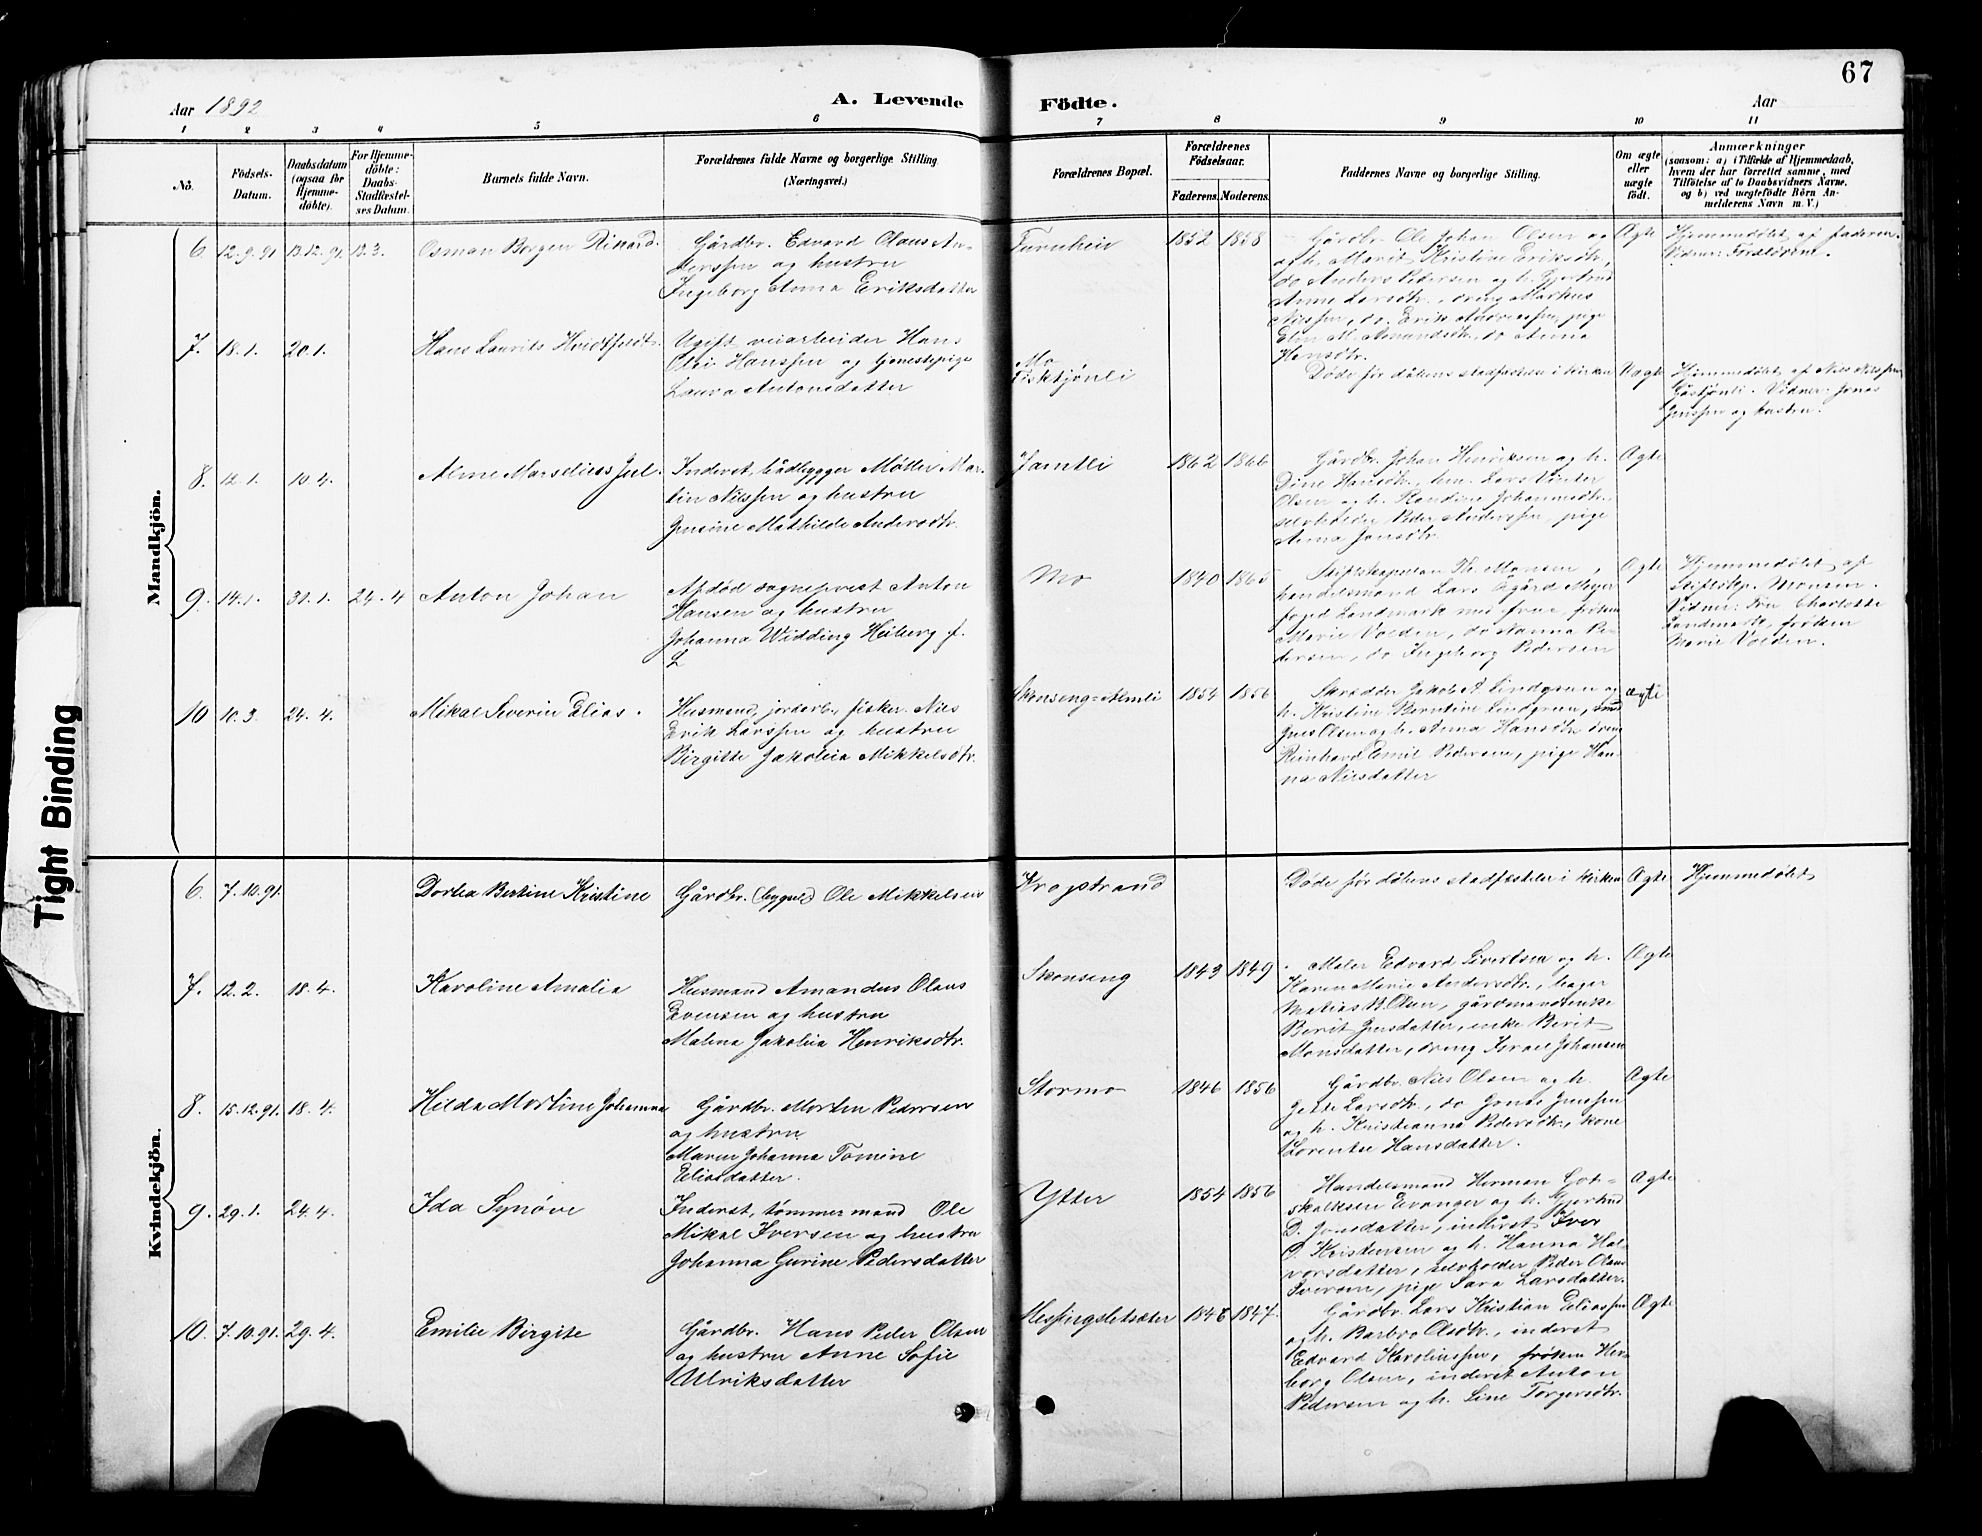 67
Aar 1892
A. Levende
Födte.
Aar
1 2 3 4 5 6 7 8 9 10 11
No.
Födsels-Datum.
Daabsdatum (ogsaa for Hjemme-döbte).
For Hjemme-döbte: Daabs-Stadfæstel-ses Datum.
Barnets fulde Navn.
Forældrenes fulde Navne og borgerlige Stilling (Næringsvei.)
Forældrenes Bopæl.
Forældrenes Födselsaar.
Faderens. Moderens.
Faddernes Navne og borgerlige Stilling.
Om ægte eller uægte födt.
Anmærkninger
(saasom: a) i Tilfælde af Hjemmedaab,
hvem der har forrettet samme, med
Tilföielse af to Daabsvidners Navne,
og b) ved uægtefödte Börn An-
melderens Navn m. V.)
Mandkjön.
6. 12.9.91 13.12.91 13.3. Osman Borgen Rikard.
Gårdbr. Edvard Olaus An-
derssen og hustru
Ingeborg Anna Eriksdatter
1852 1858
Gårdbr. Ole Johan Olsen og
h. Marit Kristine Eriksdtr.,
do Anders Pedersen og h. Gjertrud
Anne Larsdtr., dreng Markus
Nilssen, do. Erik Andreassen, pige
Elen M. Amundsdtr., do Anna
Hansdtr.
Ægte
Hjemmedøbt af faderen.
Vidner: Forældrene.
7. 18.1. 20.1. Hans Laurits Hvidtfeldt.
Ugift veiarbeider Hans
Olai Hanssen og tjenestepige
Laura Antonsdatter
Mo
Fisktjønli
Døde før dåbens stadfæstelse i kirken
Uægte
Hjemmedøbt af Nils Nilssen
Vidner: Jonas
Jenssen og hustru.
8. 12.1. 10.4. Alme Marselius Jul.
Inderst, bådbygger Møller Mar-
tin Nilssen og hustru
Jensine Mathilde Andersdtr.
Jamtli
1862 1866
Gårdbr. Johan Henriksen og h.
Dine Hansdtr., hm. Lars
Olsen og h. Johannesdtr.,
selveholder Peder Anderssen, pige
Anna Jonsdtr.
Ægte
9. 14.1. 31.1. 24.4 Anton Johan
Afdød sogneprest Anton
Hansen og hustru
Johanna Widding Heiberg f.
L
Mo
1840 1865
Stiftskapellan Th. Monsen,
handelsmand Lars Ågård Meyer
foged Landmark med frue, frøken
Marie Volden, do Hanna Pe-
dersen, do Ingeborg Pedersen
Ægte
Hjemmedøbt af
Stiftskap. Monsen.
Vidner: Fru Charlotte
Landmark, frøken
Marie Volden.
10 10.3. 24.4. Mikal Severin Elias.
Husmand, jordarb., fisker Nils
Erik Larssen og hustru
Birgitte Jakobia Mikkelsdtr.
Skonseng=Almli
1854 1856
Skrædder Jakob A. Lindgren og
h. Kristine Berntine Lindgren,
Jens Olsen og h. Anna Hansdtr. dreng
Reinhard Emil Pedersen, pige Han-
na Nilsdatter
ægte
Kvindekjön.
6. 7.10.91. Dorlea Bertine Kristine
Gårdbr. (bygsel) Ole Mikkelsen
Krogstrand
Døde før dåbens stadfæstelse i kirken
Ægte
Hjemmedøbt
7. 12.2. 18.4. Karoline Amalia
Husmand Amandus Olaus
Evensen og hustru
Malena Jakobia Henriksdtr.
Skonseng
1843 1849
Maler Edvard Sivertsen og h.
Karen Marie Andersdtr., bager
Matias H. Olsen, gårdmandsenke
Berit Jensdatter, enke Berit
Monsdatter, dreng Israel Johansen
Ægte
8. 15.12.91. 18.4. Hilda Mortine Johanna
Gårdbr. Morten Pedersen
og hustru
Maren Johanna Tomine
Eliasdatter.
Stormo
1846 1856
Gårdbr. Nils Olsen og h.
Larsdtr., do Jonas Jenssen
og h. Kristianna Pedersdtr., kone
Lorentse Hansdatter.
Ægte
9. 29.1. 24.4. Ida Synøve
Inderst, tømmermand Ole
Mikal Iversen og hustru
Johanna Gurine Pedersdatter
Ytter
1854 1856
Handelsmand Herman Got-
skalksen Evanger og h. Gjertrud
D. Jonsdatter, inderst Iver
O. Kristensen og h. Hanna Hal-
vorsdatter, selveholder Peder Olaus
Iversen, pige Sara Larsdatter.
Ægte
10. 7.10.91. 29.4. Emilie Birgite
Gårdbr. Hans Peder Olsen
og hustru Anne Sofie
Ulriksdatter
Messingsletsæter
1848 1847.
Gårdbr. Lars Kristian Eliassen
og h. Barbro Olsdtr., inderst
Edvard Karolinssen, frøken Her-
borg Olsen, inderst Anton
Pedersen og h. Line Torgersdtr.
Ægte
Tight Binding